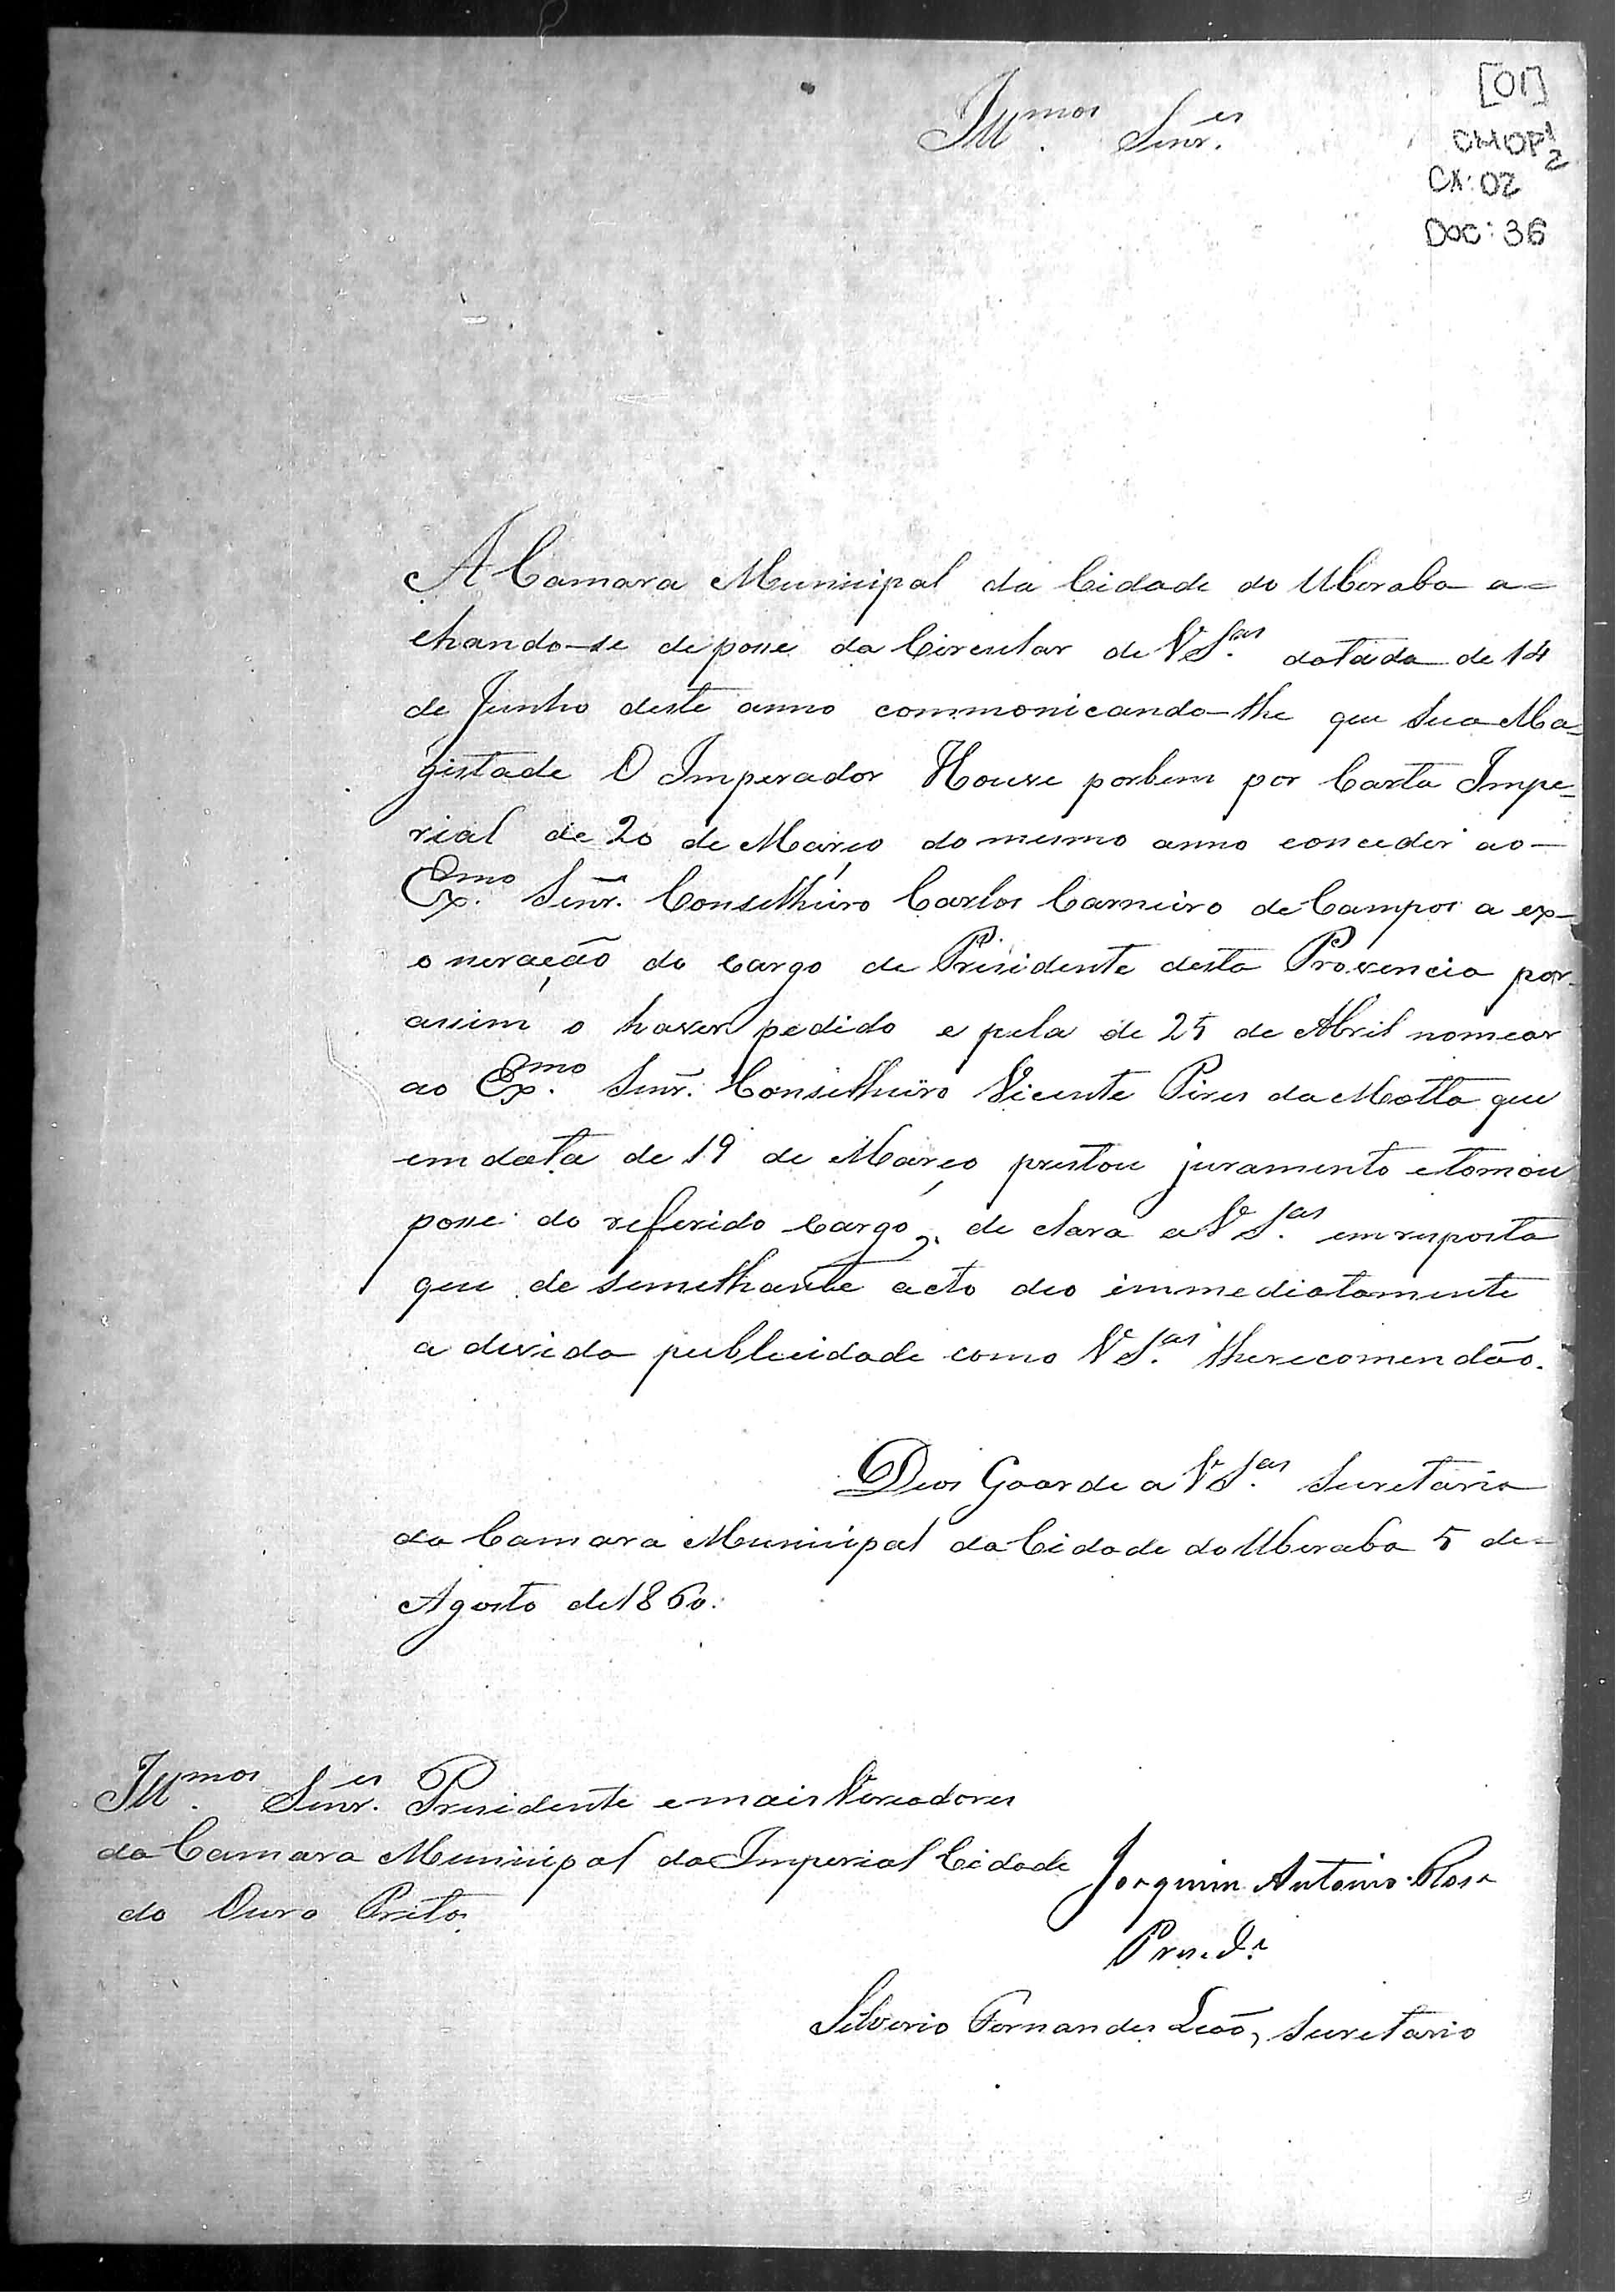 [01]
CMOP 1/2
CX: 02
DOC: 36
Ill.mos Senr.es
A Camara Municipal da Cidade do Uberaba a=
chando-se de posse da Circular de V S.as datada de 14
de Junho deste anno commonicando-lhe que Sua Ma=
gistade O Imperador Houve porbem por Carta Impe=
rial de 20 de Março do mesmo anno conceder ao
Ex.mo Senr. Conselheiro Carlos Carneiro de Campos a ex-
oneração do cargo de Presidente desta Provencia por-
assim o haver pedido e pela de 25 de Abril nomear
ao Ex.mo Senr. Conselheiro Vicente Pires da Motta que
em data de 19 de Março prestou juramento e tomou
posse do referido cargo, de clara a V S.as em resposta
que de semelhante acto deo immediatamente
a devida publicidade como V S.as lhe recomendão.
Deos Goarde a V S.as Secretaria
da Camara Municipal da Cidade do Uberaba 5 de=
Agosto de 1860.
Ill.mos Senr.es Presidente e mais Vereadores
da Camara Municipal da Imperial Cidade
do Ouro Preto.
Joaquim Antonio Rosa
Presid.e
Silverio Fernandes Leão, Secretario